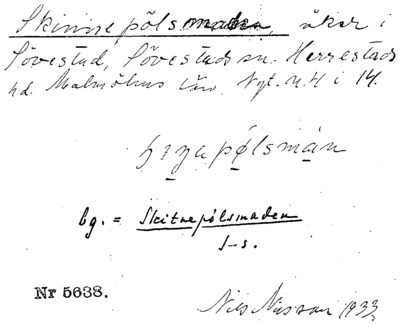 Skinnepölsmaden, åker i
Sövestad, Sövestads sn. Herrestads
hd. Malmöhus län. Nyt. n:4 i 14.
pǫlsmán
bg. = Skitnepölsmaden
s-s.
Nr 5638.
Nils Nilsson 1933